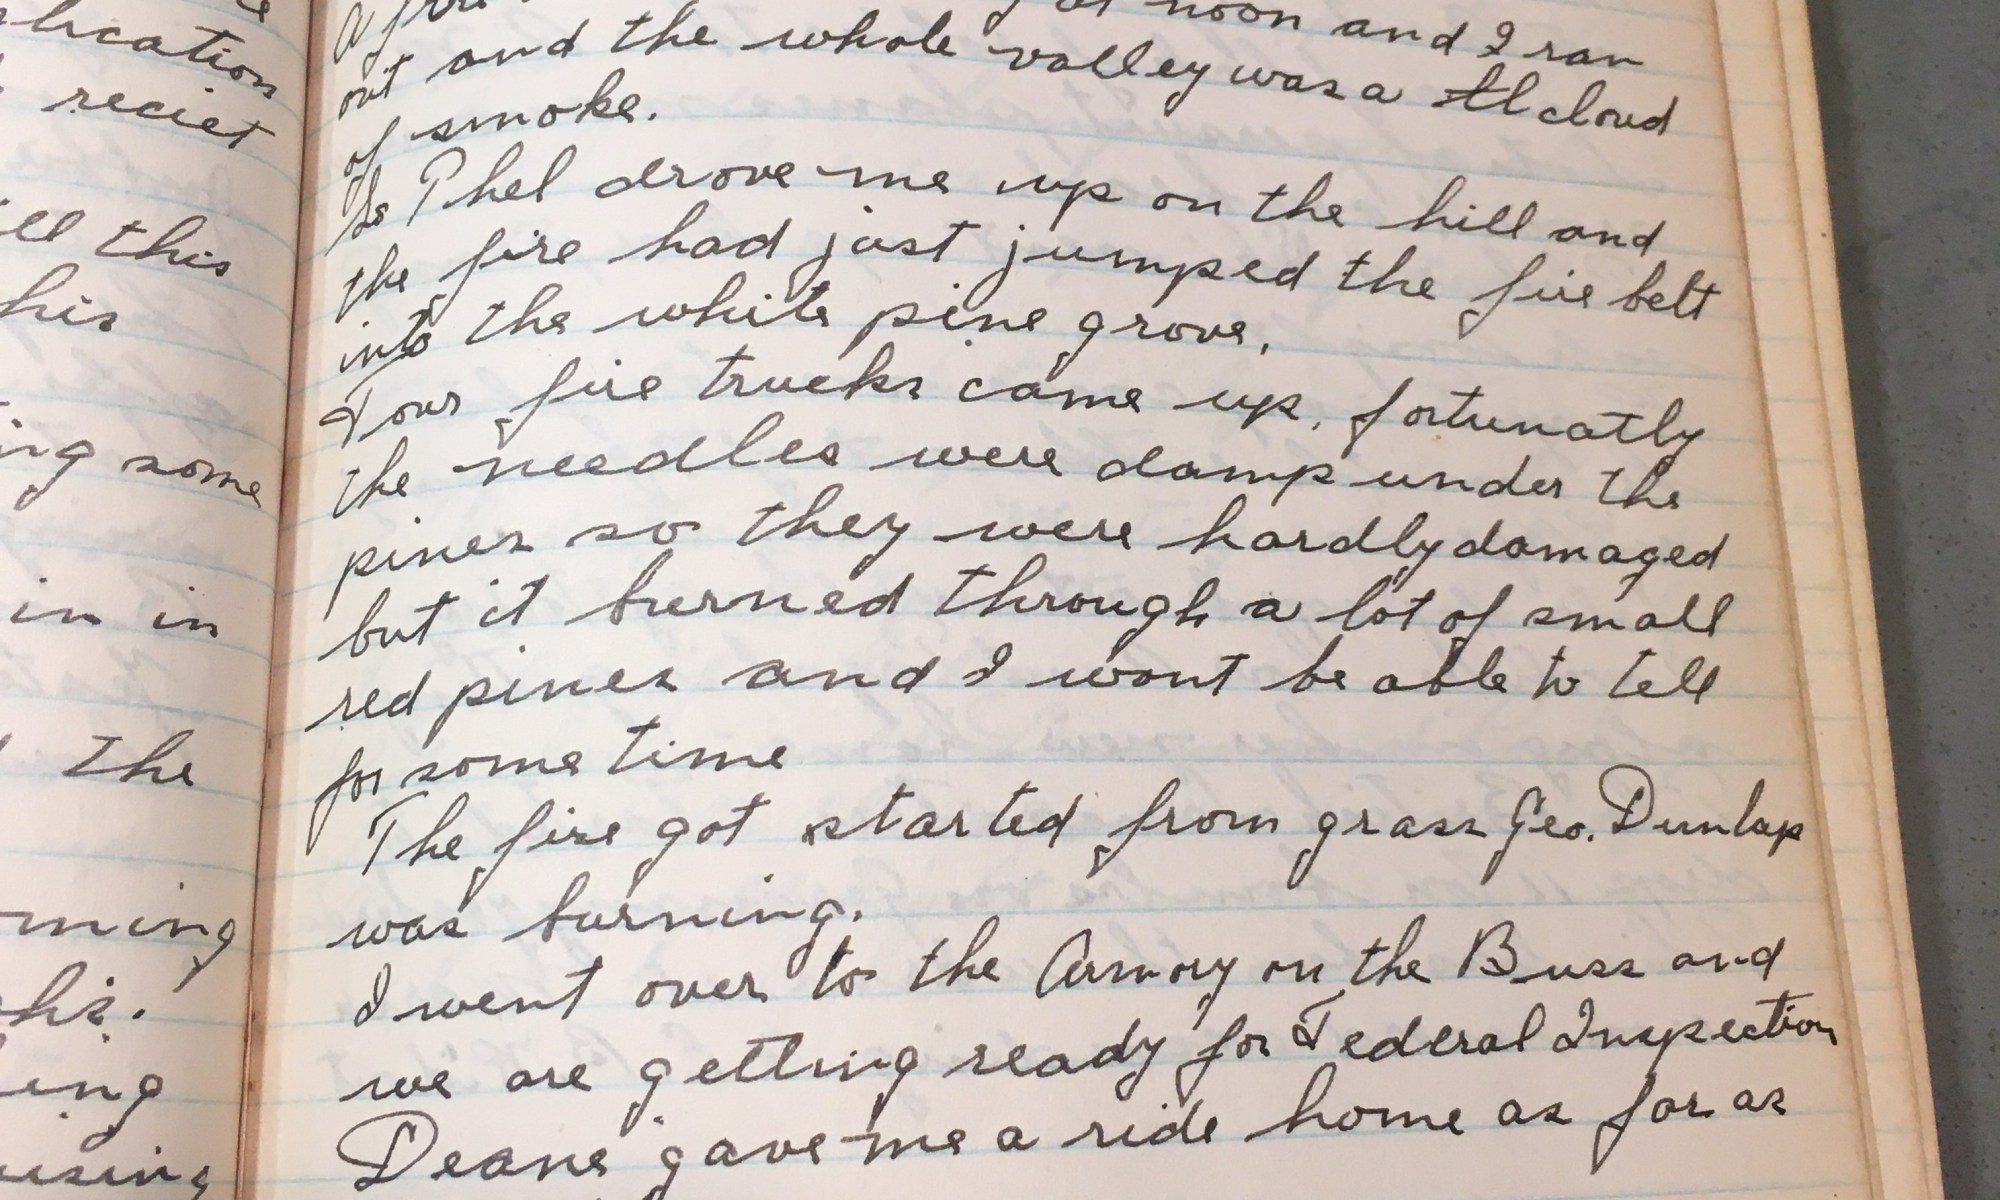 lication
reciet
ell this
his
ing some
in in
the
ming
his.
ing
using
A fire at noon and I ran
out and the whole valley was a cloud
of smoke.
So Phel drove me up on the hill and
the fire had just jumped the fire belt
into the white pine grove,
Four fire trucks came up, fortunatly
the needles were damp under the
pines so they were hardly damaged
but it burned through a lot of small
red pines and I wont be able to tell
for some time
The fire got started from grass Geo. Dunlap
was burning.
I went over to the Armory on the Buss and
we are getting ready for Federal Inspection
Deane gave me a ride home as far as